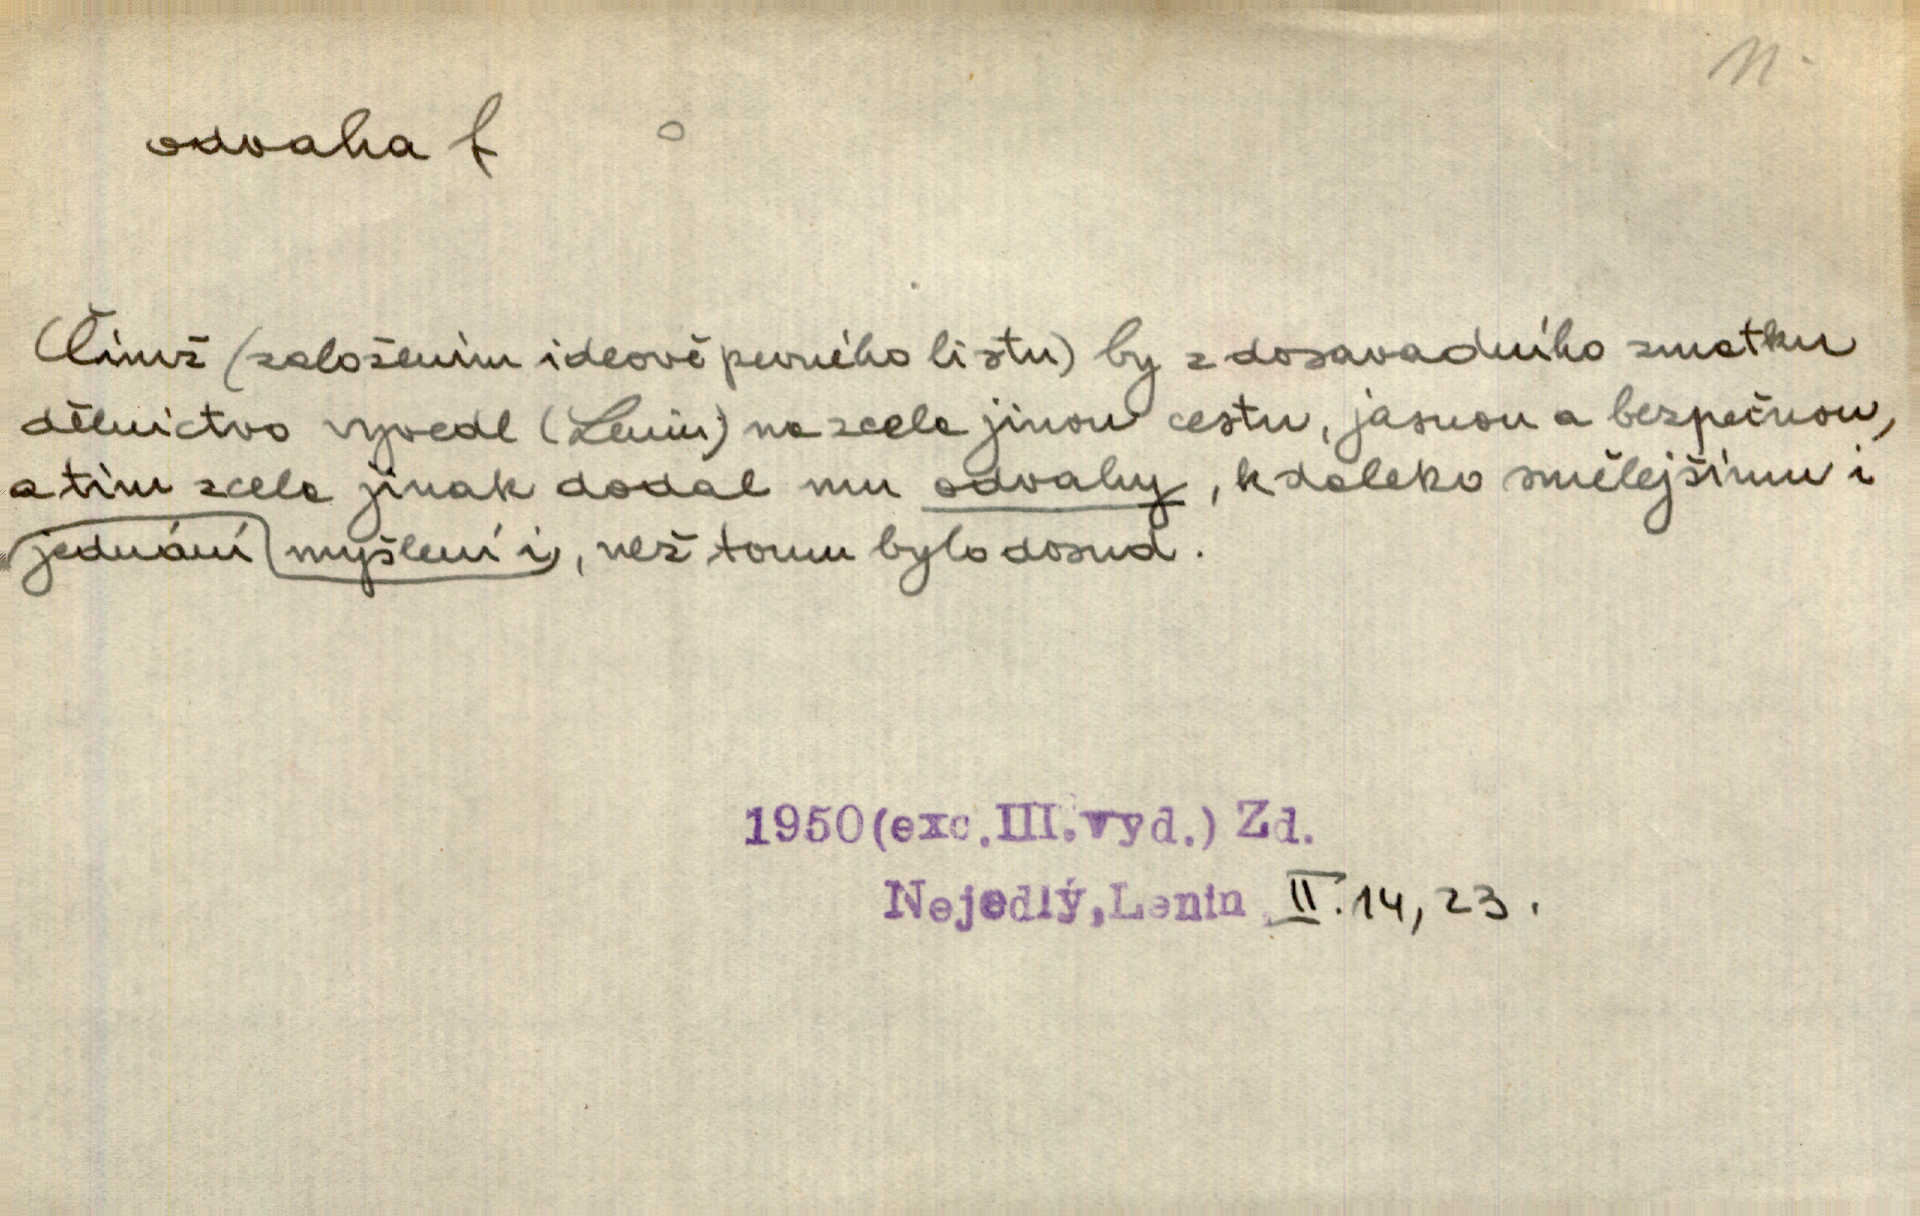 n.
odvaha f
Čímž (založením ideově pevného listu) by z dosavadního zmatku
dělnictvo vyvedl (Lenin) na zcela jinou cestu, jasnou a bezpečnou,
a tím zcela jinak dodal mu odvahy, k daleko smělejšímu i
jednání myšlení i, než tomu bylo dosud.
1950(exc.III.vyd.) Zd.
Nejedlý,Lenin II. 14, 23.